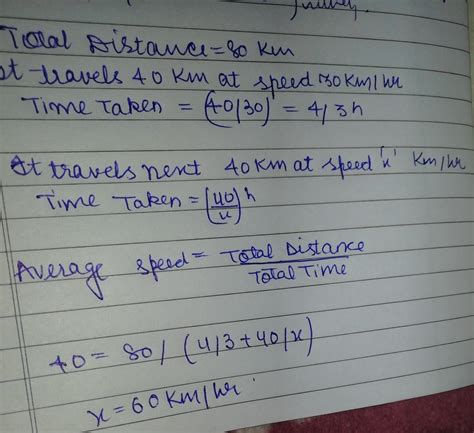 Total Distance = 80 Km
It travels 40 Km at speed 30 Km/hr
Time Taken = (40/30) = 4/3 h
It travels next 40 Km at speed 'x' Km/hr
Time Taken = (40/x) h
Average speed = Total Distance / Total Time
40 = 80 / (4/3 + 40/x)
x = 60 Km/hr.